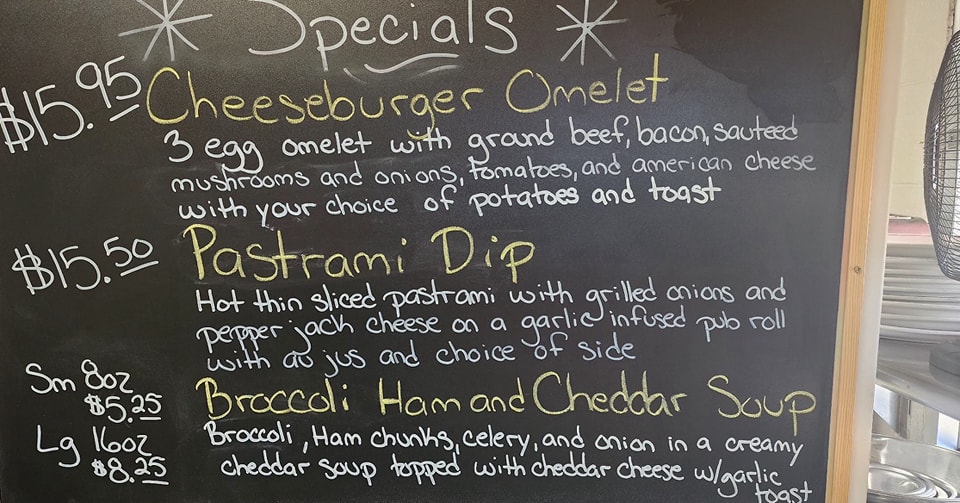 Specials
$15.95 Cheeseburger Omelet
3 egg omelet with ground beef, bacon, sauteed
mushrooms and onions, tomatoes, and american cheese
with your choice of potatoes and toast
$15.50 Pastrami Dip
Hot thin sliced pastrami with grilled onions and
pepper jack cheese on a garlic infused pub roll
with au jus and choice of side
Sm 8oz
$5.25
Broccoli Ham and Cheddar Soup
Lg 16oz
$8.25
Broccoli, Ham chunks, celery, and onion in a creamy
cheddar soup topped with cheddar cheese w/garlic
toast